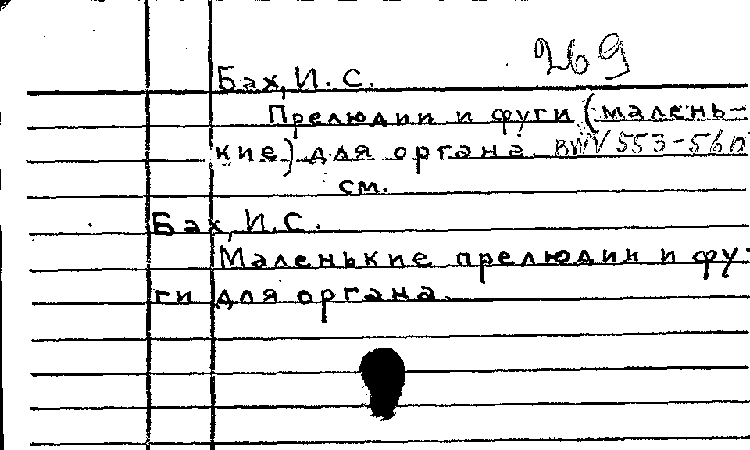 269
Бах, И. С.
Прелюдии и фуги (малень-
кие) для органа. BWV 553-560
см.
Бах, И. С.
Маленькие прелюдии и фу-
ги для органа.